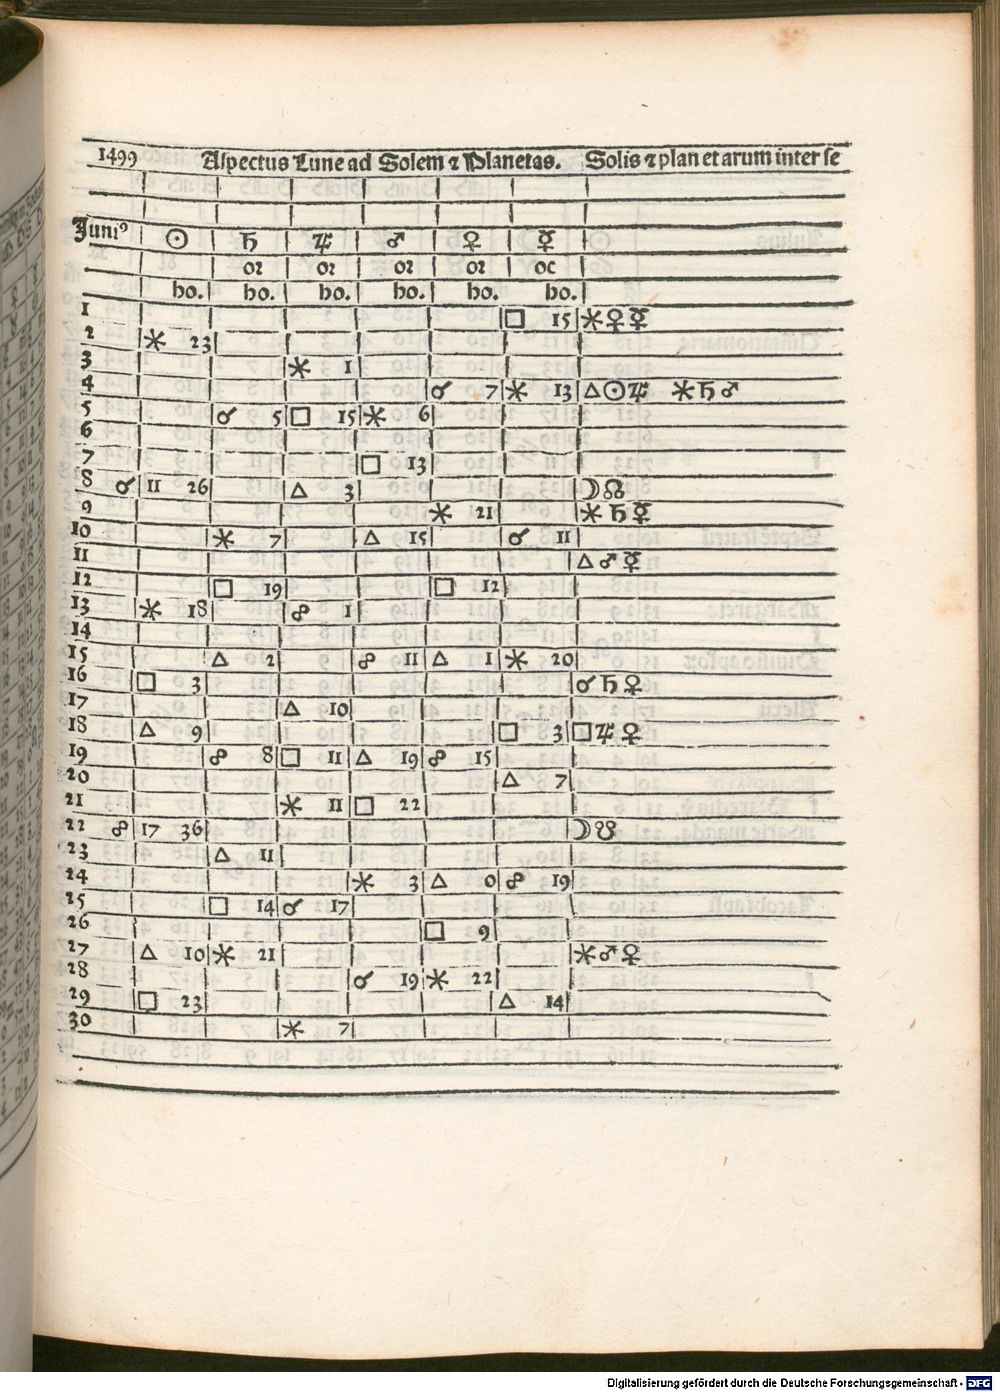 1499 Aspectus Lune ad Solem ⁊ Planetas. Solis ⁊ planetarum inter se
Juniꝰ ☉ ♄ ♃ ♂ ♀ ☿
oꝛ oꝛ oꝛ oꝛ oc
ho. ho. ho. ho. ho. ho.
1 □ 15 ⚹ ♀ ☿
2 ⚹ 23
3 ⚹ 1
4 ☌ 7 ⚹ 13 △ ☉ ♃ ⚹ ♄ ♂
5 ☌ 5 □ 15 ⚹ 6
6
7 □ 13
8 ☌ 11 26 △ 3 ☽ ☊
9 ⚹ 21 ⚹ ♄ ☿
10 ⚹ 7 △ 15 ☌ 11
11 △ ♂ ☿
12 □ 19 □ 12
13 ⚹ 18 ☍ 1
14
15 △ 2 ☍ 11 △ 1 ⚹ 20
16 □ 3 ☌ ♄ ♀
17 △ 10
18 △ 9 □ 3 □ ♃ ♀
19 ☍ 8 □ 11 △ 19 ☍ 15
20 △ 7
21 ⚹ 11 □ 22
22 ☍ 17 36 ☽ ☋
23 △ 11
24 ⚹ 3 △ 0 ☍ 19
25 □ 14 ☌ 17
26 □ 9
27 △ 10 ⚹ 21 ⚹ ♂ ♀
28 ☌ 19 ⚹ 22
29 □ 23 △ 14
30 ⚹ 7
Digitalisierung gefördert durch die Deutsche Forschungsgemeinschaft - DFG